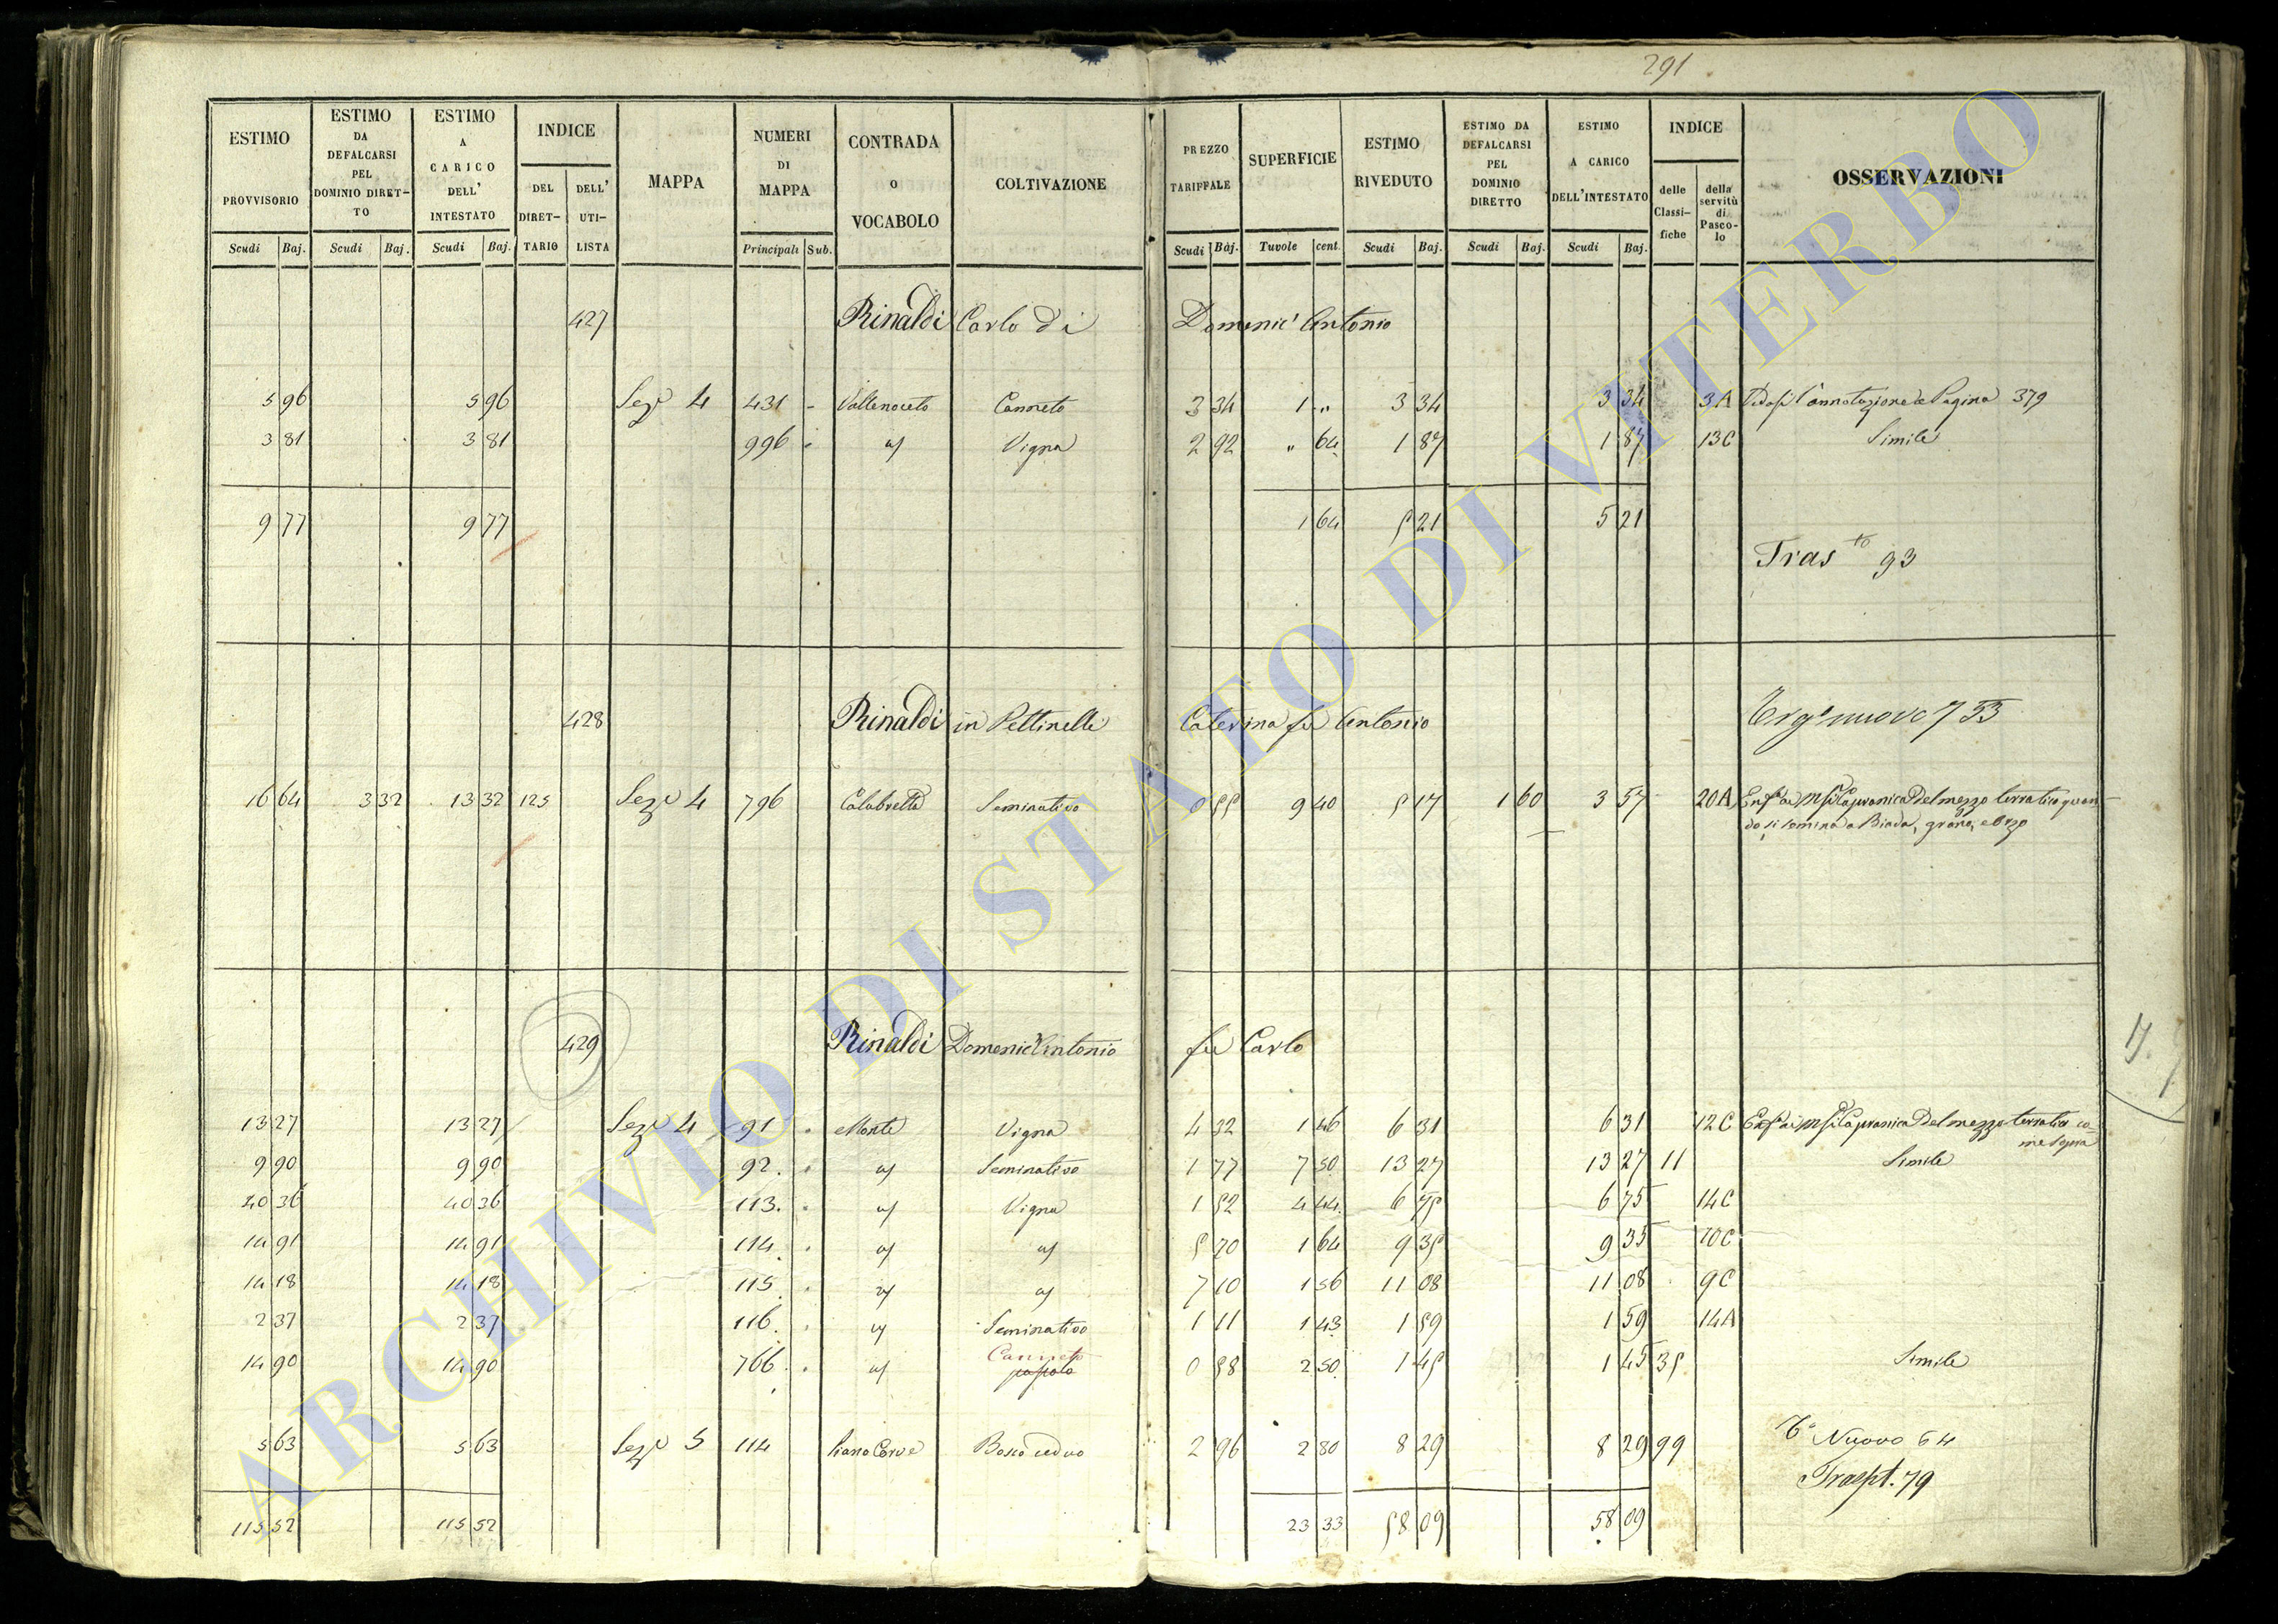 291
ESTIMO PROVVISORIO
ESTIMO DA DEFALCARSI PEL DOMINIO DIRET-TO
ESTIMO A CARICO DELL' INTESTATO
INDICE
DEL DIRET-TARIO
DELL' UTI-LISTA
MAPPA
NUMERI DI MAPPA
CONTRADA O VOCABOLO
COLTIVAZIONE
PREZZO TARIFFALE
SUPERFICIE
ESTIMO RIVEDUTO
ESTIMO DA DEFALCARSI PEL DOMINIO DIRETTO
ESTIMO A CARICO DELL'INTESTATO
INDICE
delle Classi-fiche
della servitù di Pasco-lo
OSSERVAZIONI
Scudi Baj. Scudi Baj. Scudi Baj. Principali Sub. Scudi Baj. Tavole cent. Scudi Baj. Scudi Baj. Scudi Baj.
427 Rinaldi Carlo di Domenic' Antonio
5 96 5 96 Sez. 4 431 - Vallenoceto Canneto 3 34 1 " 3 34 3 34 3A l'annotazione Pagina 379
3 81 3 81 996 Vigna 2 92 " 64 1 87 1 87 13C Simile
9 77 9 77 1 64 5 21 5 21
Tras to 93
428 Rinaldi in Pettinelli Caterina fu Antonio nuovo 733
16 64 3 32 13 32 125 Sez. 4 796 Calabrella Seminativo 0 55 9 40 5 17 1 60 3 57 20A Capranica Del mezzo terratico quan-
do si semina a Biada, grano, e Orzo
429 Rinaldi Domenic'Antonio fu Carlo
13 27 13 27 Sez. 4 91 Monte Vigna 4 32 1 46 6 31 6 31 12C Capranica Del mezzo terratico co-
me sopra
9 90 9 90 92 Seminativo 1 77 7 50 13 27 13 27 11 Simile
40 36 40 36 113 Vigna 1 52 4 44 6 75 6 75 14C
14 91 14 91 114 5 70 1 64 9 35 9 35 10C
14 18 14 18 115 7 10 1 56 11 08 11 08 9C
2 37 2 37 116 Seminativo 1 11 1 43 1 59 1 59 14A
Canneto
14 90 14 90 766 pascolo 0 58 2 50 1 45 1 45 35 Simile
5 63 5 63 Sez. 5 114 Piano Corve Bosco ceduo 2 96 2 80 8 29 8 29 99 Nuovo 64
Traspt. 79
115 52 115 52 23 33 58 09 58 09
ARCHIVIO DI STATO DI VITERBO